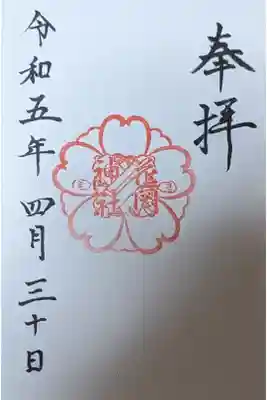 奉拝
神社
令和五年 四月三十日